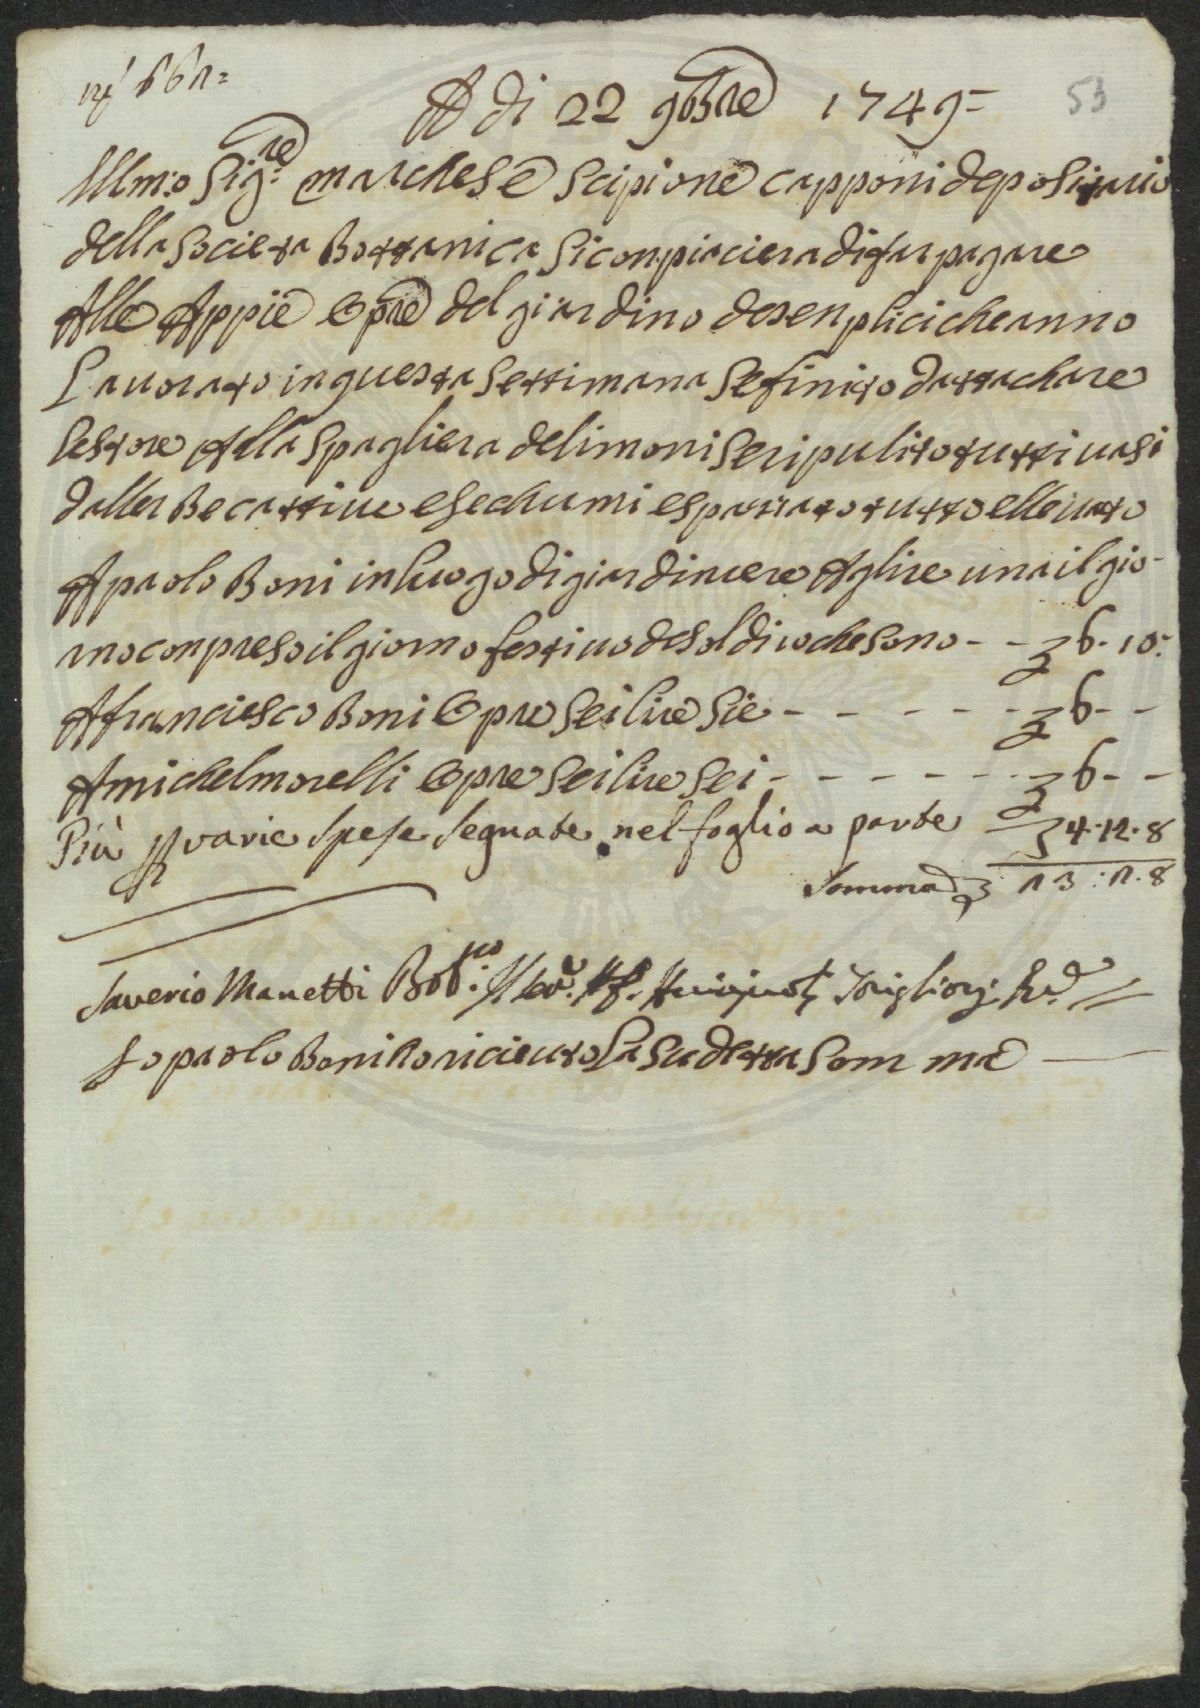 nº 661=
53
A di 22 9bre 1749=
Illmo Sigre marchese Scipione capponi depositario
della Societa Bottanica Si conpiaciera di far pagare
Alle Appie Opre del giardino de senplici che anno
Lauorato in questa Settimana Se finito dattachare
le store Alla Spagliera de limoni Se ripulito tutti uasi
daller Be cattiue e sechumi e spazzato tutto elleuato
A paolo Boni in luogo di giardiniere A glire una il gio-
rno conpreso il giorno festiuo de soldi 10 che sono - - 6.10.
A franciesco Boni Opre Sei lire Sie - - - - - - 6 - -
A michel morelli Opre Sei lire Sei - - - - - - 6 - -
Più p varie Spese Segnate nel foglio a parte 4.12.8
Somma 23:2.8
Saverio Manetti Botco
Io paolo Boni o riceuto La Sudetta Som ma